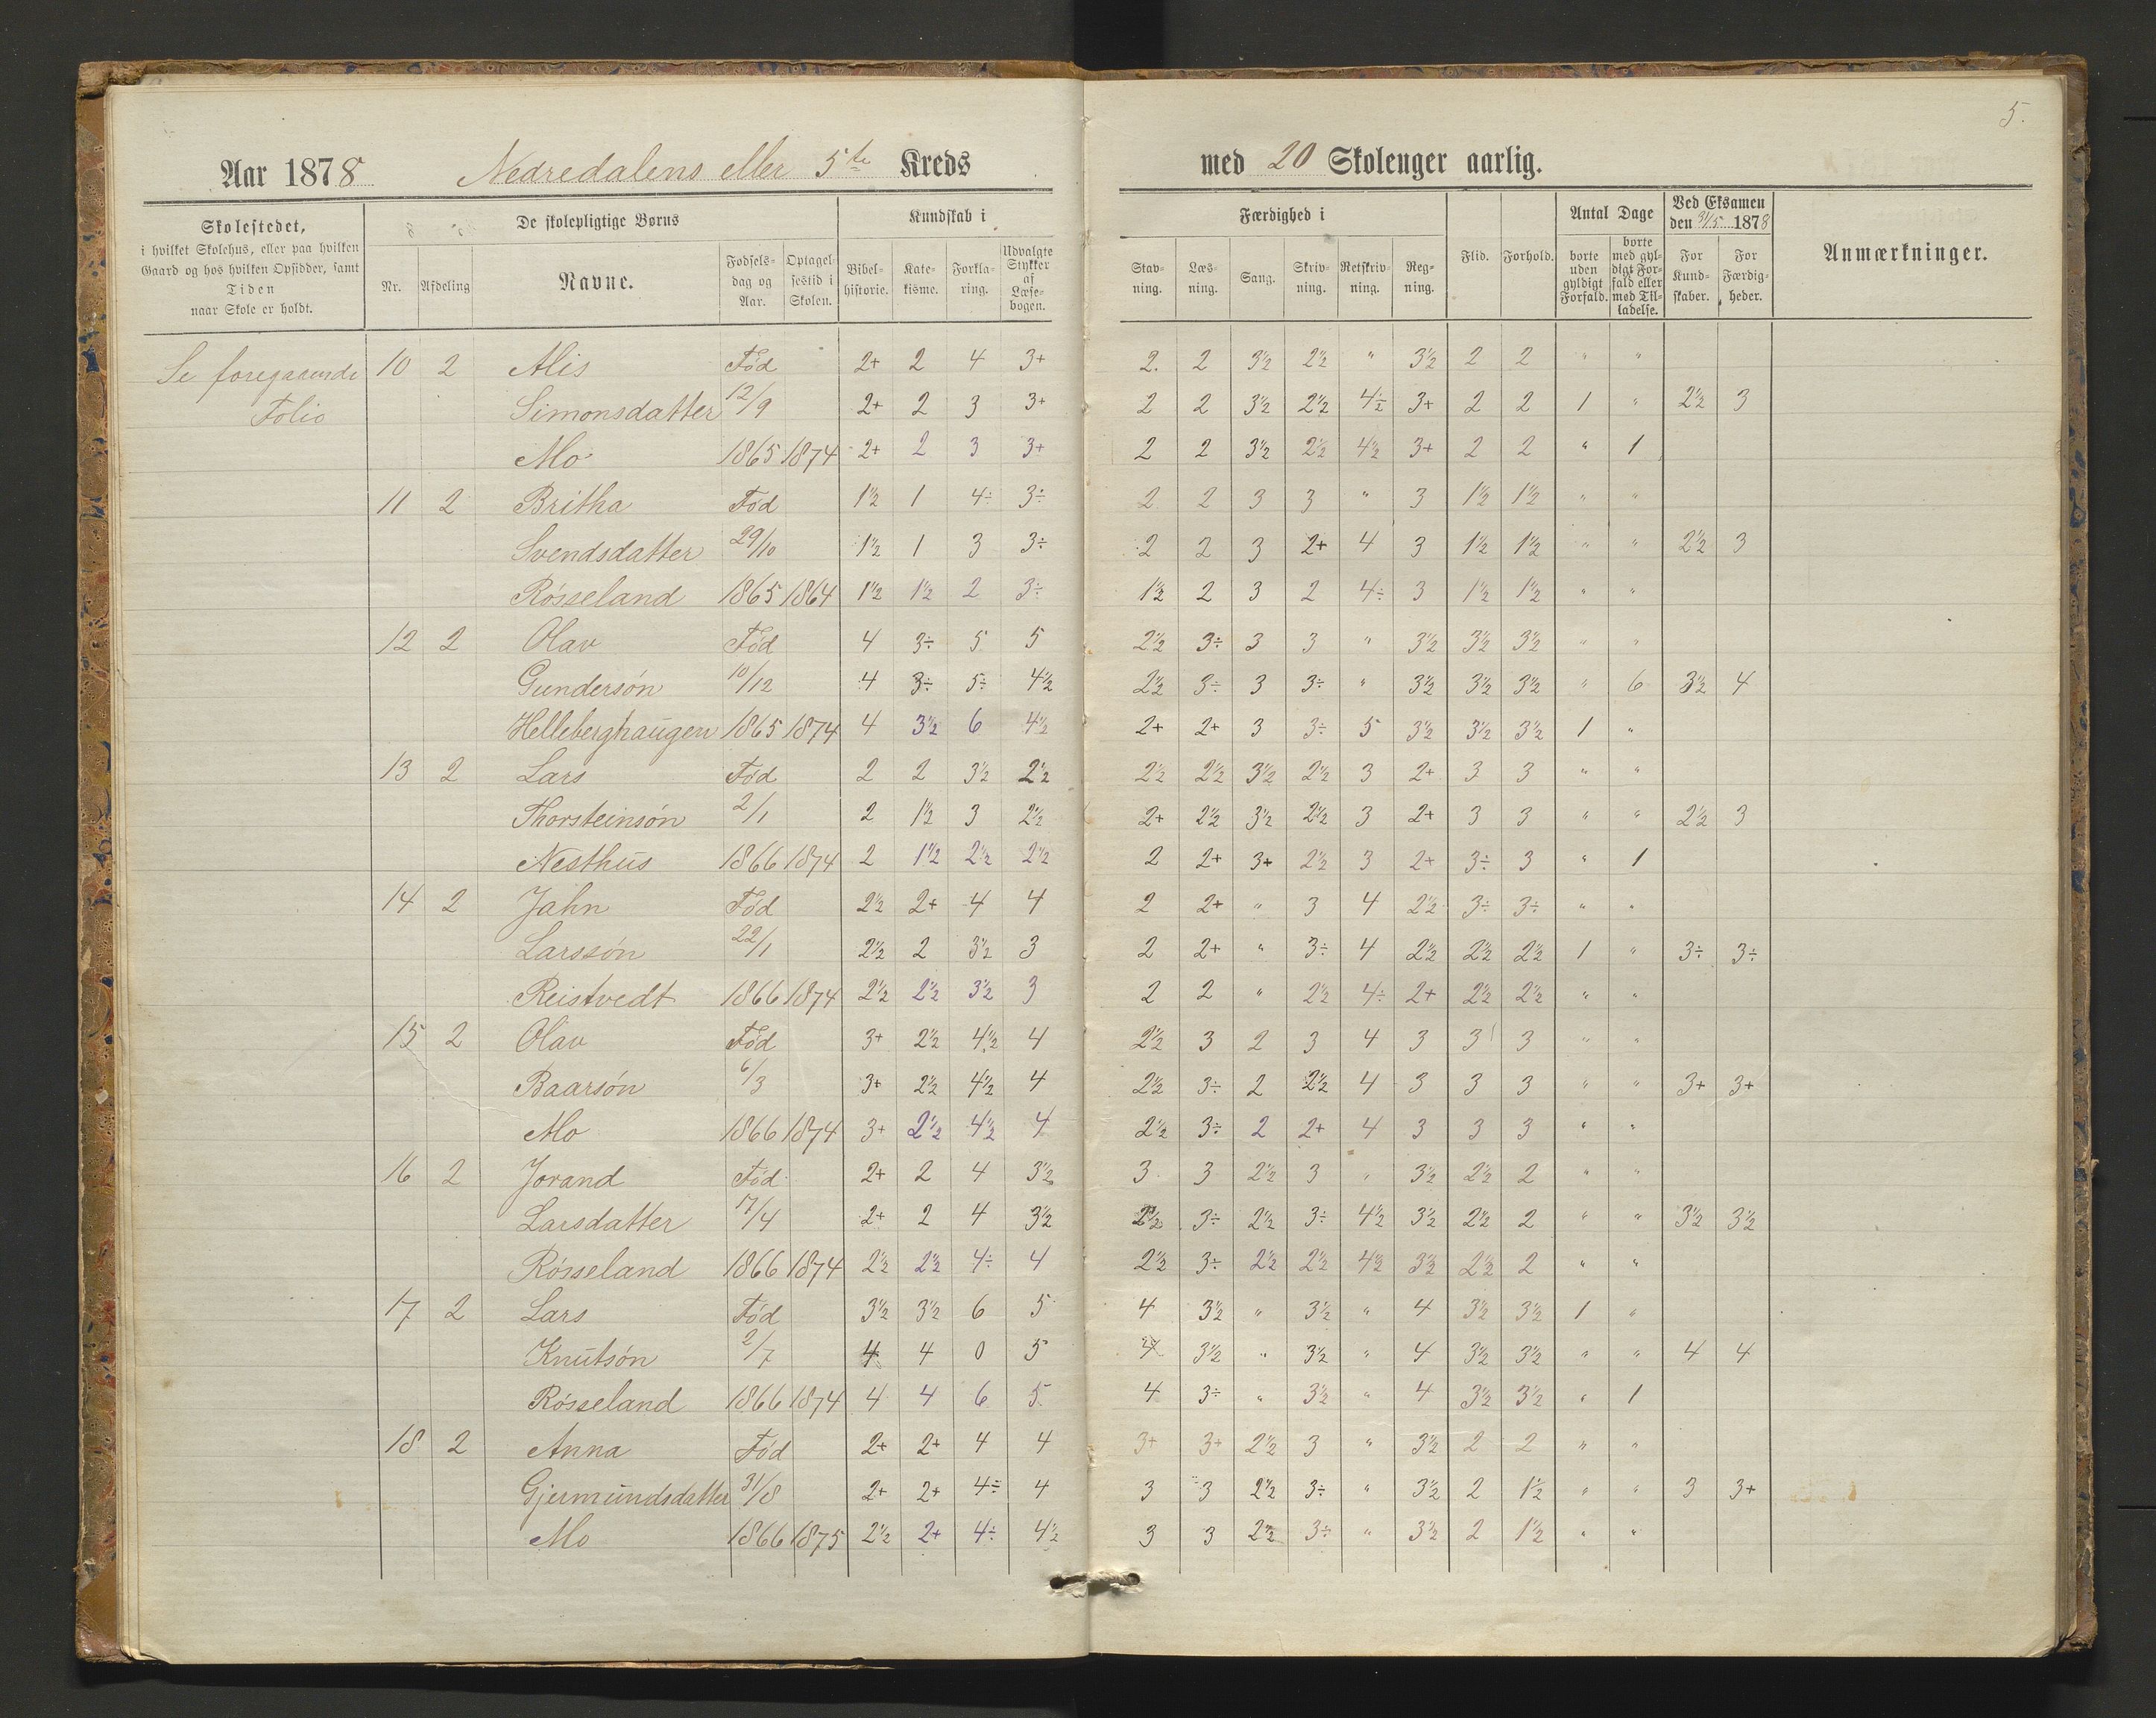 5.
Aar 1878 Nedredalens eller 5te Kreds med 20 Skolenger aarlig.
Skolestedet, i hvilket Skolehus, eller paa hvilken Gaard og hos hvilken Opsidder, samt Tiden naar Skole er holdt.
De skolepligtige Børns
Nr. Afdeling Navne. Fødselsdag og Aar. Optagelsestid i Skolen.
Kundskab i
Bibelhistorie. Katekisme. Forklaring. Udvalgte Stykker af Læsebogen.
Færdighed i
Stavning. Læsning. Sang. Skrivning. Retskrivning. Regning.
Flid. Forhold.
Antal Dage
borte uden gyldigt Forfald. borte med gyldigt Forfald eller med Tilladelse.
Ved Eksamen den 31/5 1878
For Kundskaber. For Færdigheder.
Anmærkninger.
Se foregaaende 10 2 Alis Fød 2+ 2 4 3+ 2. 2 3½ 2½ " 3½ 2 2 " "
Folio Simonsdatter 12/9 2+ 2 3 3+ 2 2 3½ 2½ 4½ 3+ 2 2 1 " 2½ 3
Mo 1865 1874 2+ 2 3 3+ 2 2 3½ 2½ 4½ 3+ 2 2 " 1
11 2 Britha Fød 1½ 1 4÷ 3÷ 2 2 3 3 " 3 1½ 1½ " "
Svendsdatter 29/10 1½ 1 3 3÷ 2 2 3 2+ 4 3 1½ 1½ " " 2½ 3
Røsseland 1865 1864 1½ 1½ 2 3÷ 1½ 2 3 2 4÷ 3 1½ 1½ " "
12 2 Olav Fød 4 3÷ 5 5 2½ 3÷ 3 3 " 3½ 3½ 3½ " "
Gundersøn 10/12 4 3÷ 5÷ 4½ 2½ 3÷ 3 3÷ " 3½ 3½ 3½ " 6 3½ 4
Helleberghaugen 1865 1874 4 3½ 6 4½ 2+ 2+ 3 3÷ 5 3½ 3½ 3½ 1 "
13 2 Lars Fød 2 2 3½ 2½ 2½ 2½ 3½ 2½ 3 2+ 3 3 " "
Thorsteinsøn 2/1 2 1½ 3 2½ 2+ 2½ 3½ 2½ 3 2+ 3 3 " " 2½ 3
Nesthus 1866 1874 2 1½ 2½ 2½ 2 2+ 3+ 2½ 3 2+ 3÷ 3 " 1
14 2 Jahn Fød 2½ 2+ 4 4 2 2+ " 3 4 2½ 3÷ 3÷ " "
Larssøn 22/1 2½ 2 3½ 3 2 2+ " 3÷ 4 2½ 2½ 2½ 1 " 3÷ 3÷
Reistvedt 1866 1874 2½ 2½ 3½ 3 2 2 " 2½ 4÷ 2+ 2½ 2½ " "
15 2 Olav Fød 3+ 2½ 4½ 4 2½ 3 2 3 4 3 3 3 " "
Baarsøn 6/3 3+ 2½ 4½ 4 2½ 3÷ 2 2½ 4 3 3 3 " " 3+ 3+
Mo 1866 1874 3+ 2½ 4½ 4 2½ 3÷ 2 2+ 4 3 3 3 " "
16 2 Jorand Fød 2+ 2 4 3½ 3 3 2½ 3 " 3½ 2½ 2 " "
Larsdatter 17/4 2+ 2 4 3½ 2½ 3÷ 2½ 3÷ 4½ 3½ 2½ 2 " " 3½ 3½
Røsseland 1866 1874 2½ 2½ 4÷ 4 2½ 3÷ 2½ 2½ 4½ 3½ 2½ 2 " "
17 2 Lars Fød 3½ 3½ 6 5 4 3½ " 3½ " 4 3½ 3½ 1 "
Knutsøn 2/7 4 4 0 5 4 3½ " 3½ " 4 3½ 3½ " " 4 4
Røsseland 1866 1874 4 4 6 5 4 3÷ " 3½ " 4 3½ 3½ " 1
18 2 Anna Fød 2+ 2+ 4 4 3+ 3+ 2½ 3 " 3½ 2 2 " "
Gjermundsdatter 31/8 2+ 2+ 4÷ 4 3 3 2½ 3÷ " 3½ 2 1½ " " 3 3+
Mo 1866 1875 2½ 2+ 4÷ 4½ 3 3 2½ 3÷ " 3½ 2 1½ " "